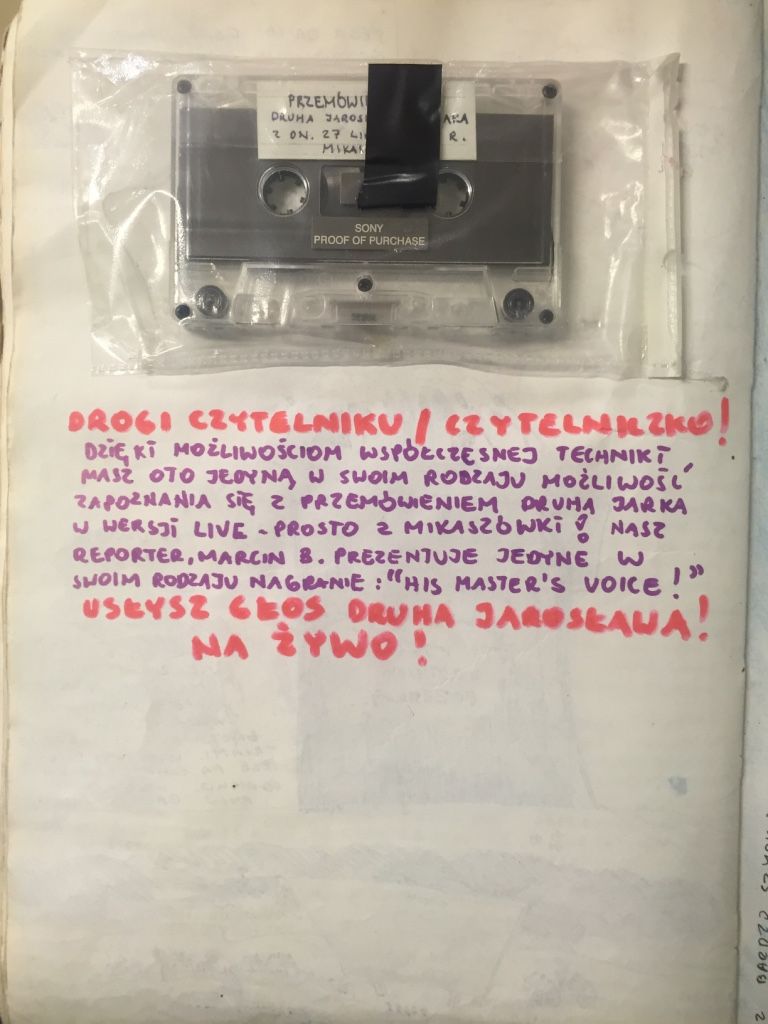 PRZEMÓWI
DRUHA JAROS AKA
Z DN. 27 LI R.
MIKA
SONY
PROOF OF PURCHASE
DROGI CZYTELNIKU / CZYTELNICZKO!
DZIĘKI MOŻLIWOŚCIOM WSPÓŁCZĘSNEJ TECHNIKI,
MASZ OTO JEDYNĄ W SWOIM RODZAJU MOŻLIWOŚĆ
ZAPOZNANIA SIĘ Z PRZEMÓWIENIEM DRUHA JARKA
W WERSJI LIVE - PROSTO Z MIKASZÓWKI! NASZ
REPORTER, MARCIN B. PREZENTUJE JEDYNE W
SWOIM RODZAJU NAGRANIE: "HIS MASTER'S VOICE!"
USŁYSZ GŁOS DRUHA JAROSŁAWA!
NA ŻYWO!
BARDZO